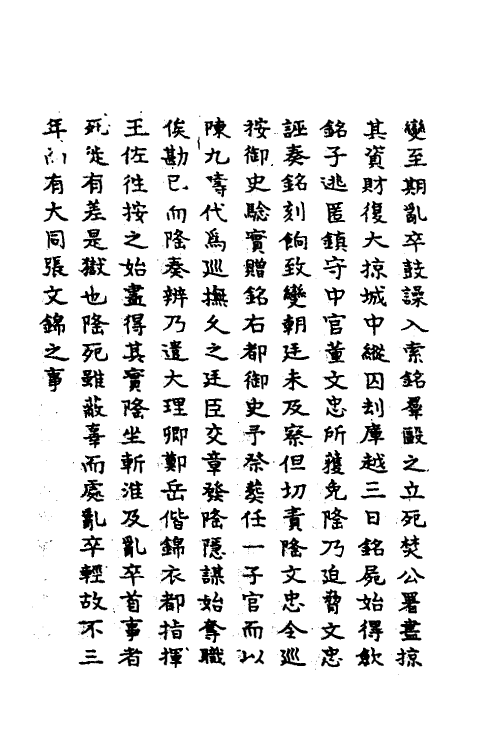 變至期亂卒鼓譟入索銘羣毆之立死焚公署盡掠
其資財復大掠城中縱囚刦庫越三日銘屍始得歛
銘子逃匿鎮守中官董文忠所獲免隆乃迫脅文忠
誣奏銘刻餉致變朝廷未及察但切責隆文忠令巡
按御史驗實贈銘右都御史予祭葬任一子官而以
陳九疇代爲巡撫久之廷臣交章發隆隱謀始奪職
俟勘已而隆奏辨乃遣大理卿鄭岳偕錦衣都指揮
王佐徃按之始盡得其實隆坐斬淮及亂卒首事者
死徙有差是獄也隆死雖蔽辜而處亂卒輕故不三
年而有大同張文錦之事